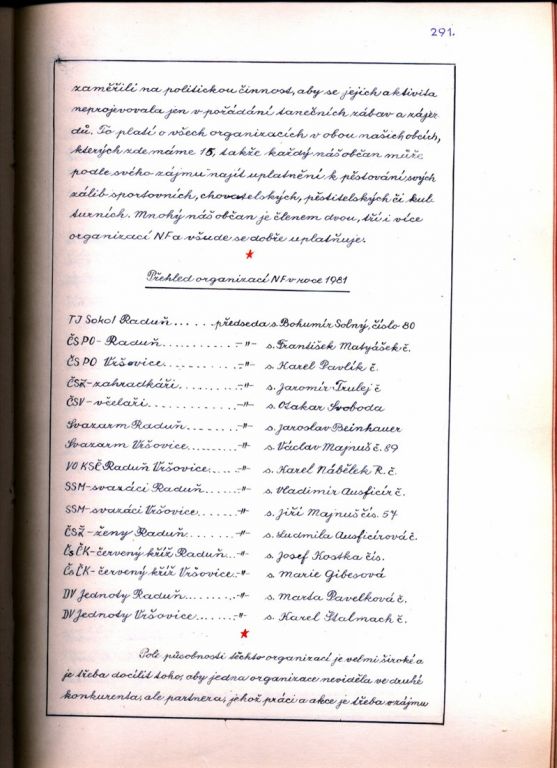 291.
zaměřili na politickou činnost, aby se jejich aktivita
neprojevovala jen v pořádání tanečních zábav a zájez
dů. To platí o všech organizacích v obou našich obcích,
kterých zde máme 15, takže každý náš občan může
podle svého zájmu najít uplatnění k pěstování svých
zálib sportovních, chovatelských, pěstitelských či kul
turních. Mnohý náš občan je členem dvou, tří i více
organizací NF a všude se dobře uplatňuje.
Přehled organizací NF v roce 1981
TJ Sokol Raduň....... předseda s. Bohumír Solný, číslo 80
ČSPO - Raduň........... -"- s. František Matyášek č.
ČSPO Vršovice........... -"- s. Karel Pavlík č.
ČSZ - zahradkáři........ -"- s. Jaromír Trulej č
ČSV - včelaři............ -"- s. Otakar Svoboda
Svazarm Raduň......... -"- s. Jaroslav Beinhauer
Svazarm Vršovice...... -"- s. Václav Majnuš č. 89
VO KSČ Raduň Vršovice..... -"- s. Karel Nábělek R. č.
SSM - svazáci Raduň...... -"- s. Vladimír Ausficír č.
SSM - svazáci Vršovice..... -"- s. Jiří Majnuš čís. 57
ČSŽ - ženy Raduň........ -"- s. Ludmila Ausficírová č.
ČsČK - červený kříž Raduň... -"- s. Josef Kostka čís.
ČsČK - červený kříž Vršovice. -"- s. Marie Gibesová
DV Jednoty Raduň....... -"- s. Marta Pavelková č.
DV Jednoty Vršovice....... -"- s. Karel Štalmach č.
Pole působnosti těchto organizací je velmi široké a
je třeba docílit toho, aby jedna organizace neviděla ve druhé
konkurenta, ale partnera, jehož práci a akce je třeba v zájmu